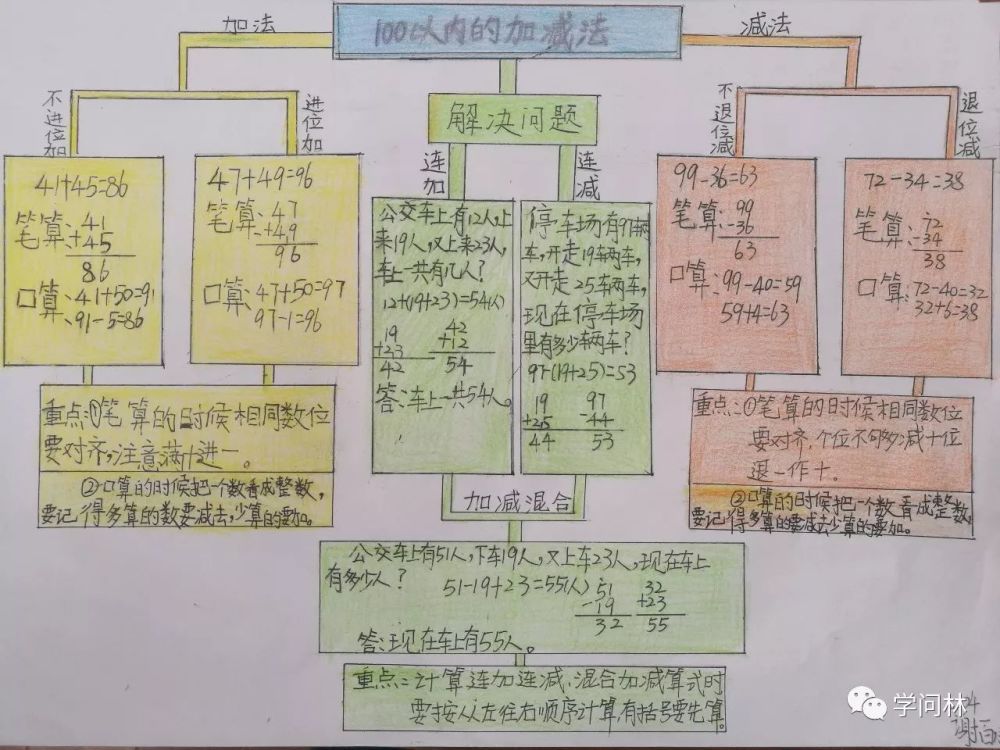 100以内的加减法
加法
不进位加
41+45=86
笔算:
41
+45
86
口算:41+50=91
91-5=86
进位加
47+49=96
笔算:
47
+49
96
口算:47+50=97
97-1=96
重点:①笔算的时候相同数位
要对齐,注意满十进一。
②口算的时候把一个数看成整数,
要记得多算的数要减去,少算的要加。
解决问题
连加
公交车上有12人,上
来19人,又上来23人,
车上一共有几人?
12+(19+23)=54(人)
19
+23
42
42
+12
54
答:车上一共54人。
连减
停车场有97辆
车,开走19车两车,
又开走25车两车,
现在停车场
里有多少辆车?
97-(19+25)=53
19
+25
44
97
-44
53
加减混合
公交车上有51人,下车19人,又上车23人,现在车上
有多少人?
51-19+23=55(人)
51
-19
32
32
+23
55
答:现在车上有55人。
重点:计算连加连减、混合加减算式时
要按从左往右顺序计算,有括号要先算。
减法
不退位减
99-36=63
笔算:
99
-36
63
口算:99-40=59
59+4=63
退位减
72-34=38
笔算:
72
-34
38
口算:72-40=32
32+6=38
重点:①笔算的时候相同数位
要对齐,个位不够多减十位
退一作十。
②口算的时候把一个数看成整数,
要记得多算的要减去少算的要加。
学问林